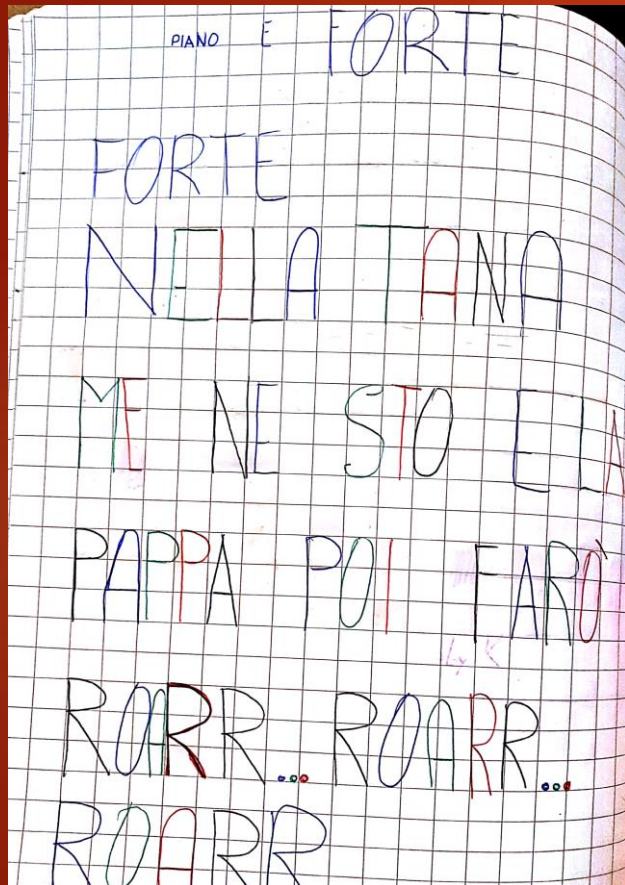 PIANO E FORTE
FORTE
NELLA TANA
ME NE STO E LA
PAPPA POI FARÒ
ROARR... ROARR...
ROARR